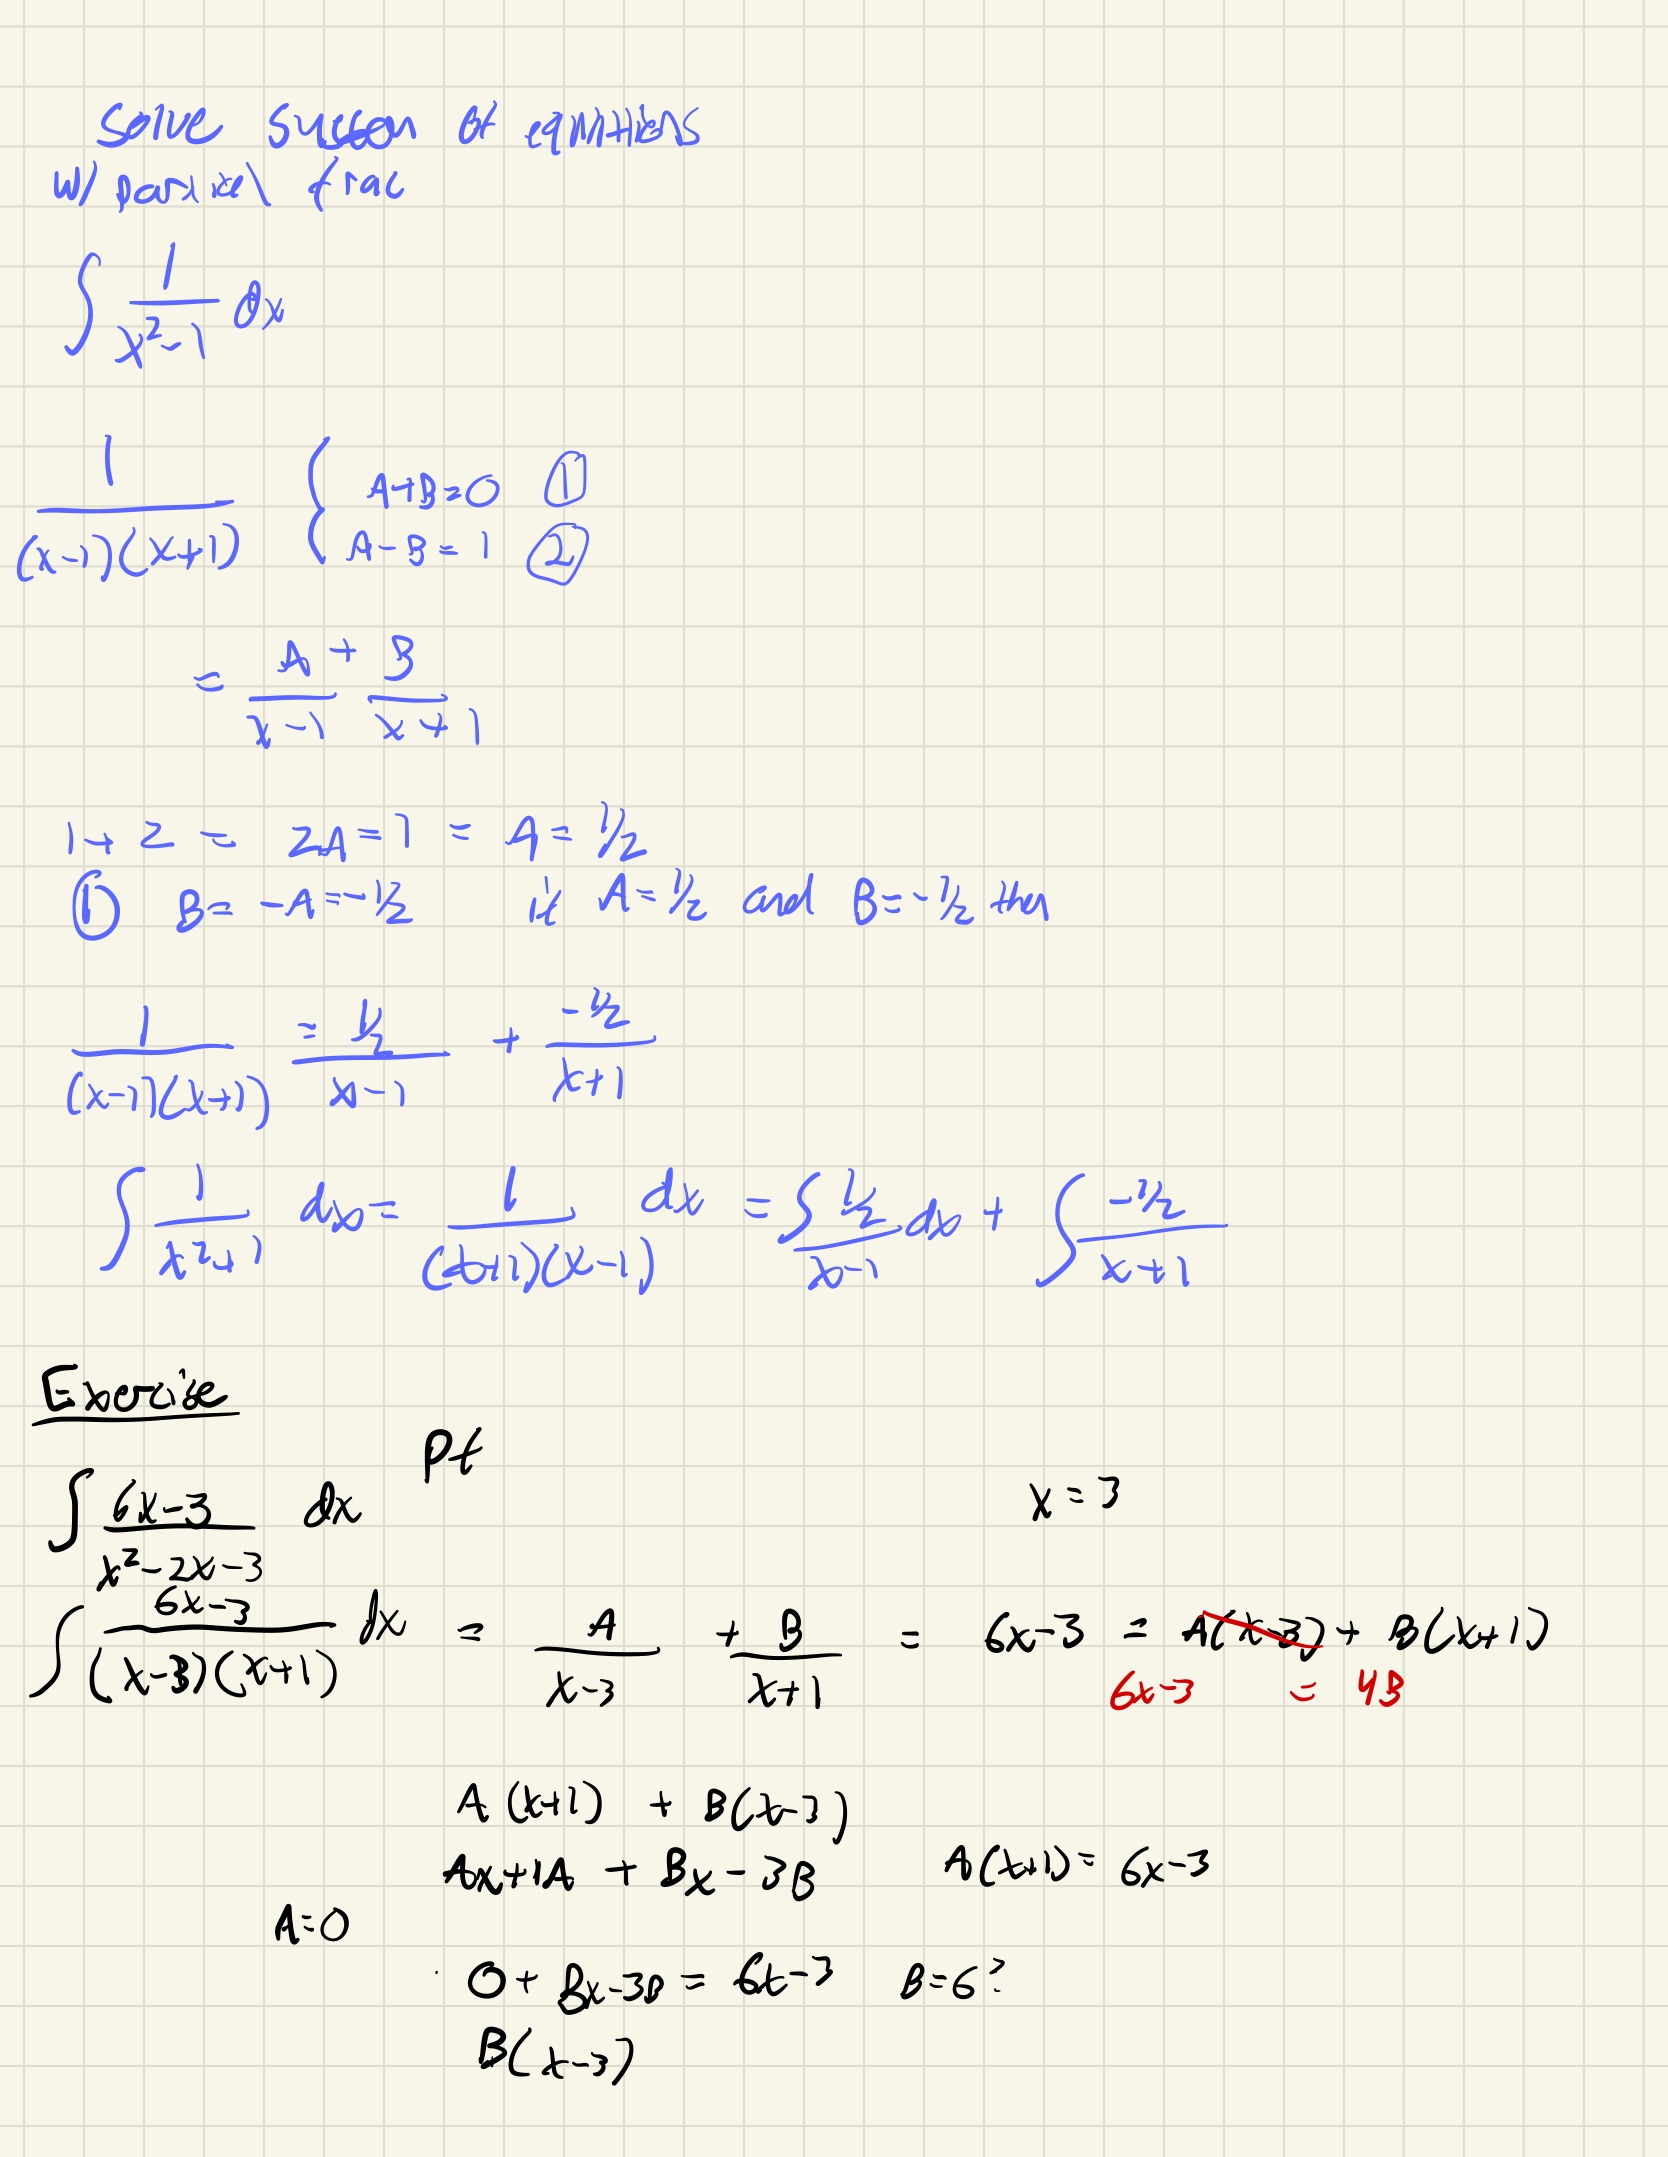 Solve system of equations
w/ partial frac
∫ 1/(x²-1) dx
1/((x-1)(x+1)) { A+B=0 ①
A-B=1 ②
= A/(x-1) + B/(x+1)
1+2 = 2A=1 = A=1/2
① B= -A=-1/2 if A=1/2 and B=-1/2 then
1/((x-1)(x+1)) = (1/2)/(x-1) + (-1/2)/(x+1)
∫ 1/(x²+1) dx = 1/((x+1)(x-1)) dx = ∫ (1/2)/(x-1) dx + ∫ (-1/2)/(x+1)
Exercise
Pf
∫ (6x-3)/(x²-2x-3) dx
x=3
∫ (6x-3)/((x-3)(x+1)) dx = A/(x-3) + B/(x+1) = 6x-3 = A(x-3) + B(x+1)
6x-3 = 4B
A(x+1) + B(x-3)
Ax+1A + Bx-3B A(x+1)= 6x-3
A=0
0+ Bx-3B = 6x-3 B=6?
B(x-3)